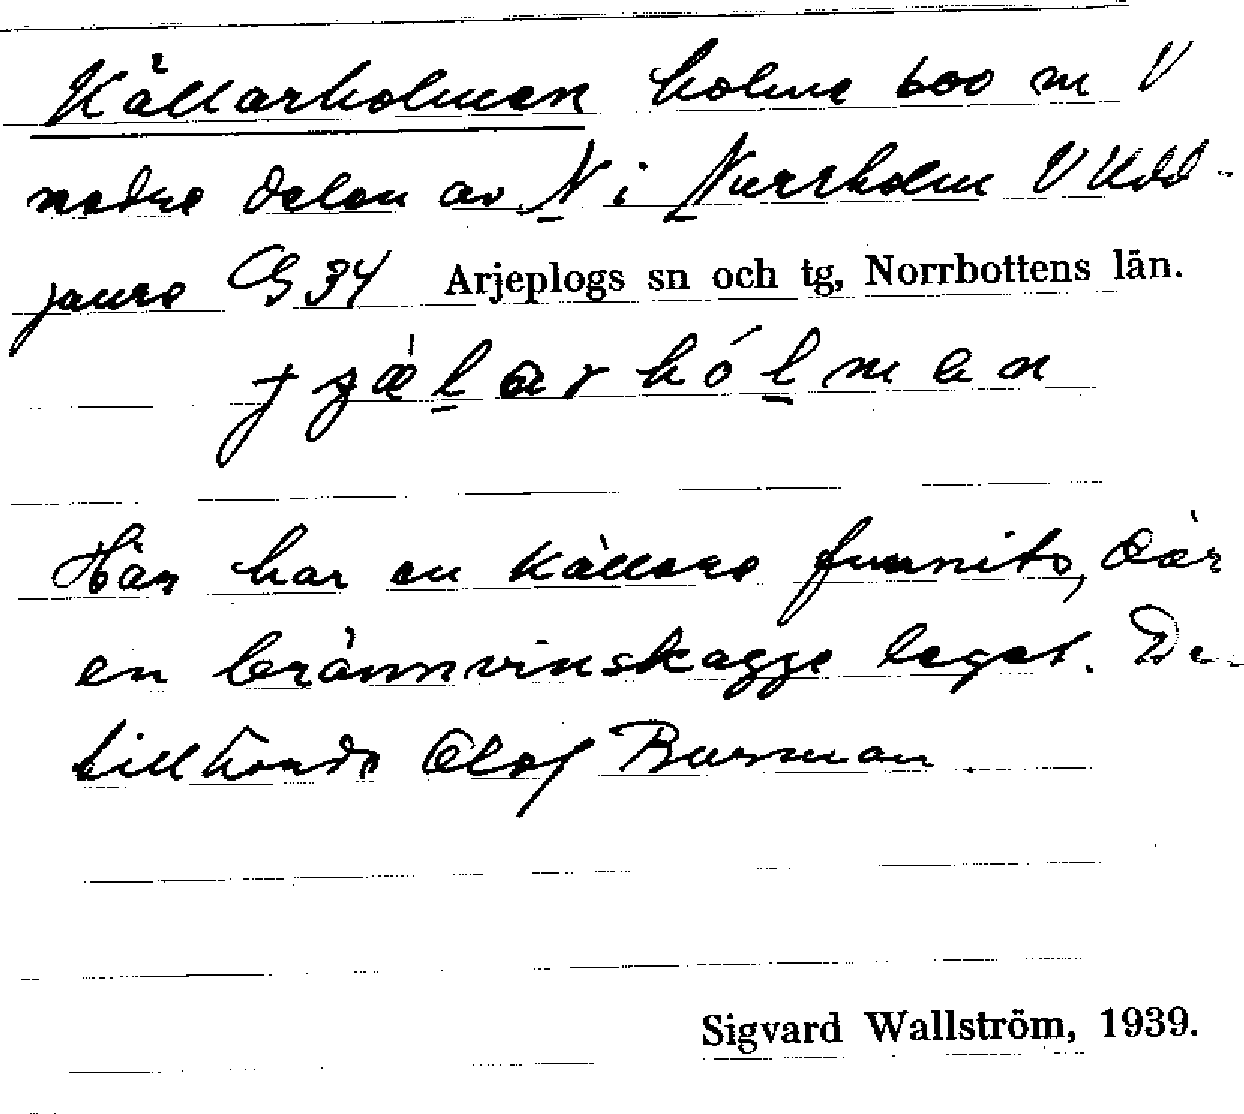 Källarholmen holme 600 m V
nedre delen av N i Norrholm V Udd-
jaure G 34 Arjeplogs sn och tg, Norrbottens län.
Här har en källare funnits, där
en brännvinskagge legat. De
tillhörde Olof Burman.
Sigvard Wallström, 1939.